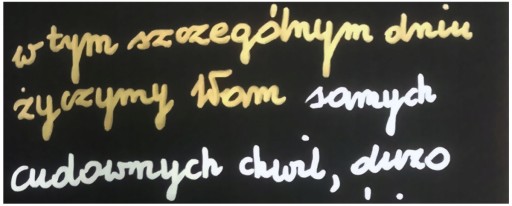 w tym szczególnym dniu
życzymy Wam samych
cudownych chwil, dużo